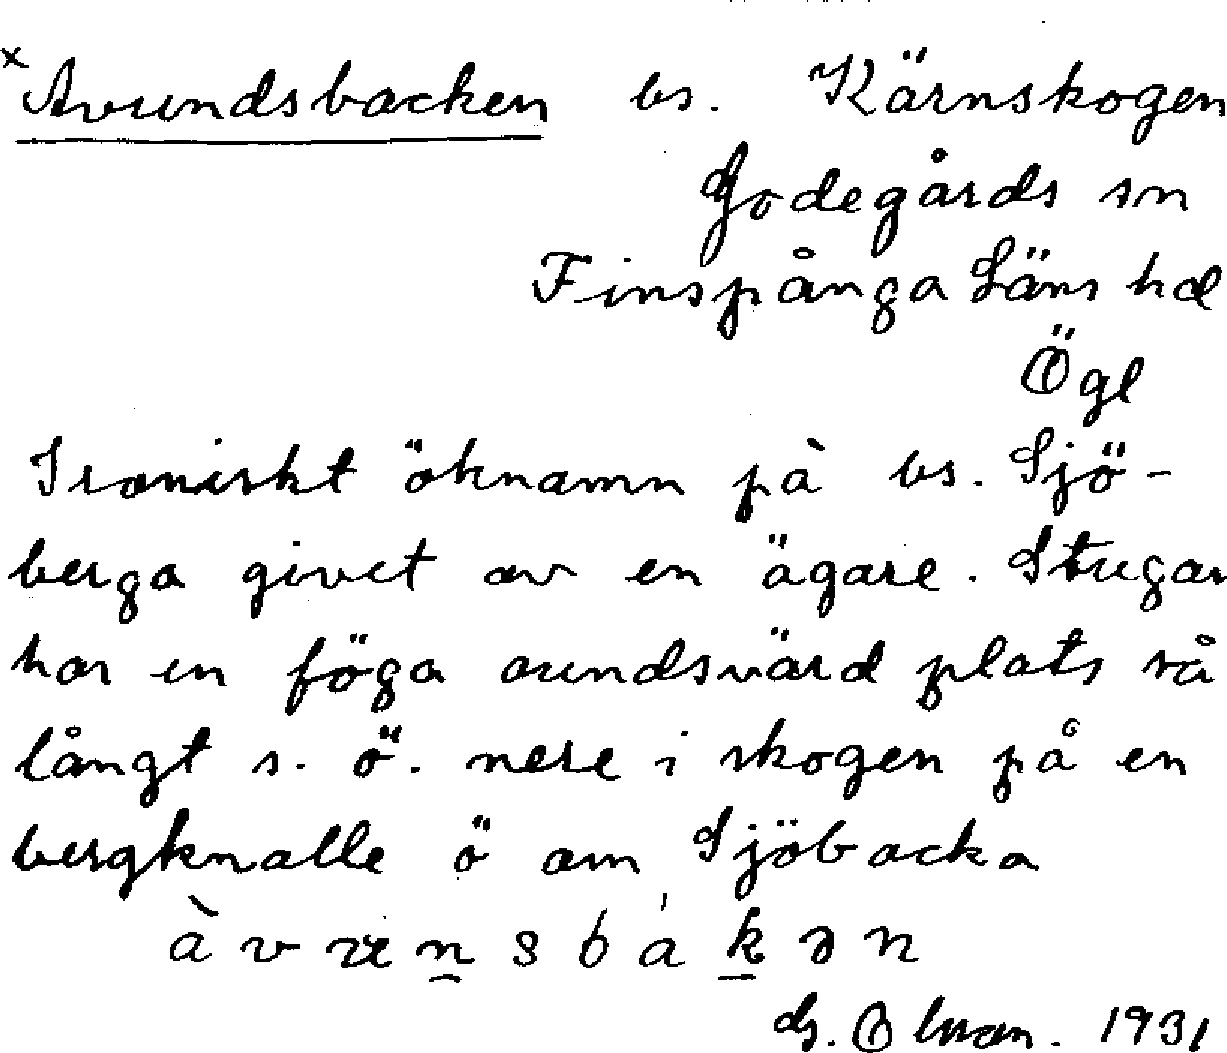 × Avundsbacken bs. Kärnskogen
Godegårds sn
Finspånga Läns hd
Ögl
Ironiskt öknamn på bs. Sjö-
berga givet av en ägare. Stugan
har en föga avundsvärd plats så
långt s. ö. nere i skogen på en
bergknalle ö om Sjöbacka
àvuṉsbákən
G.
1931